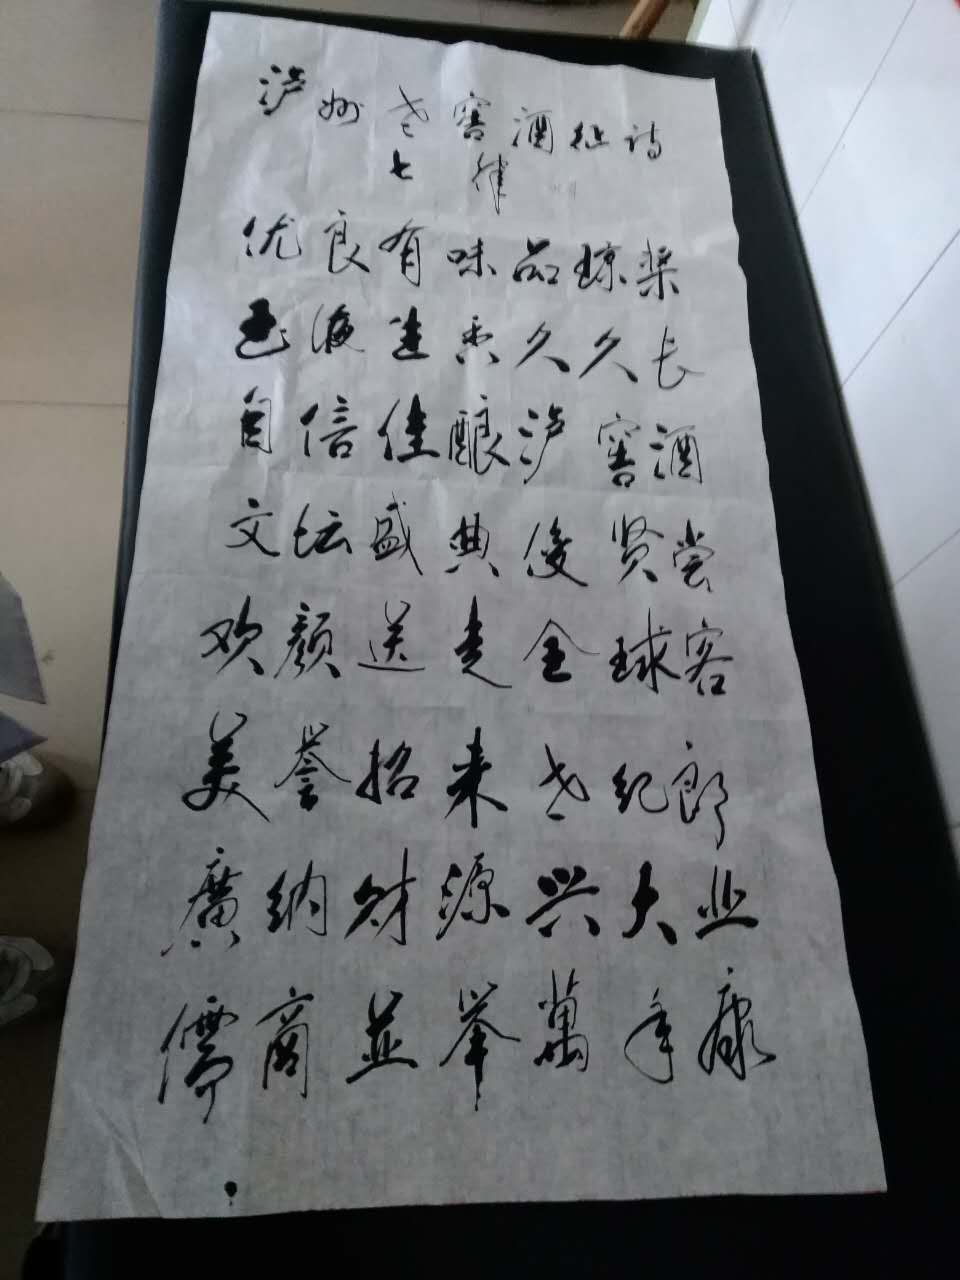 泸州老窖酒征诗
七律
优良有味品琼浆
玉液生香久久长
自信佳酿泸窖酒
文坛盛典俊贤尝
欢颜送走全球客
美誉招来老纪郎
廣纳财源兴大业
儒商並举萬年康